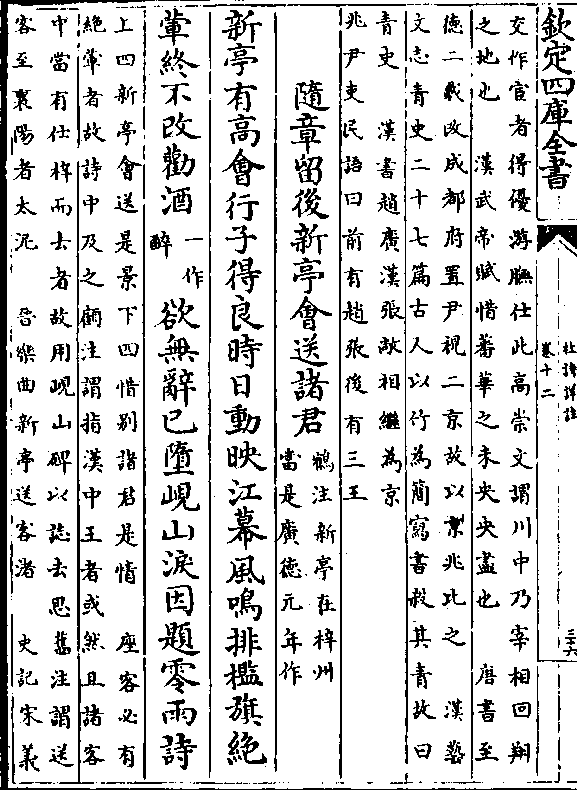 欽定四庫全書
杜詩詳註
卷十二
三十六
交作宦者得優游膴仕此高崇文謂川中乃宰相回翔
之地也 漢武帝賦惜蕃華之未央央盡也 唐書至
德二載改成都府置尹視二京故以京兆比之 漢藝
文志青史二十七篇古人以竹為簡寫書殺其青故曰
青史 漢書趙廣漢張敞相繼為京
兆尹吏民語曰前有趙張後有三王
隨章留後新亭會送諸君 鶴注新亭在梓州
當是廣德元年作
新亭有高會行子得良時日動映江幕風鳴排檻旗絶
葷終不改勸酒 一作醉 欲無辭已墮峴山淚因題零雨詩
上四新亭會送是景下四惜别諸君是情 座客必有
絶葷者故詩中及之顧注謂指漢中王者或然且諸客
中當有仕梓而去者故用峴山碑以誌去思舊注謂送
客至襄陽者太泥 晉樂曲新亭送客渚 史記宋義